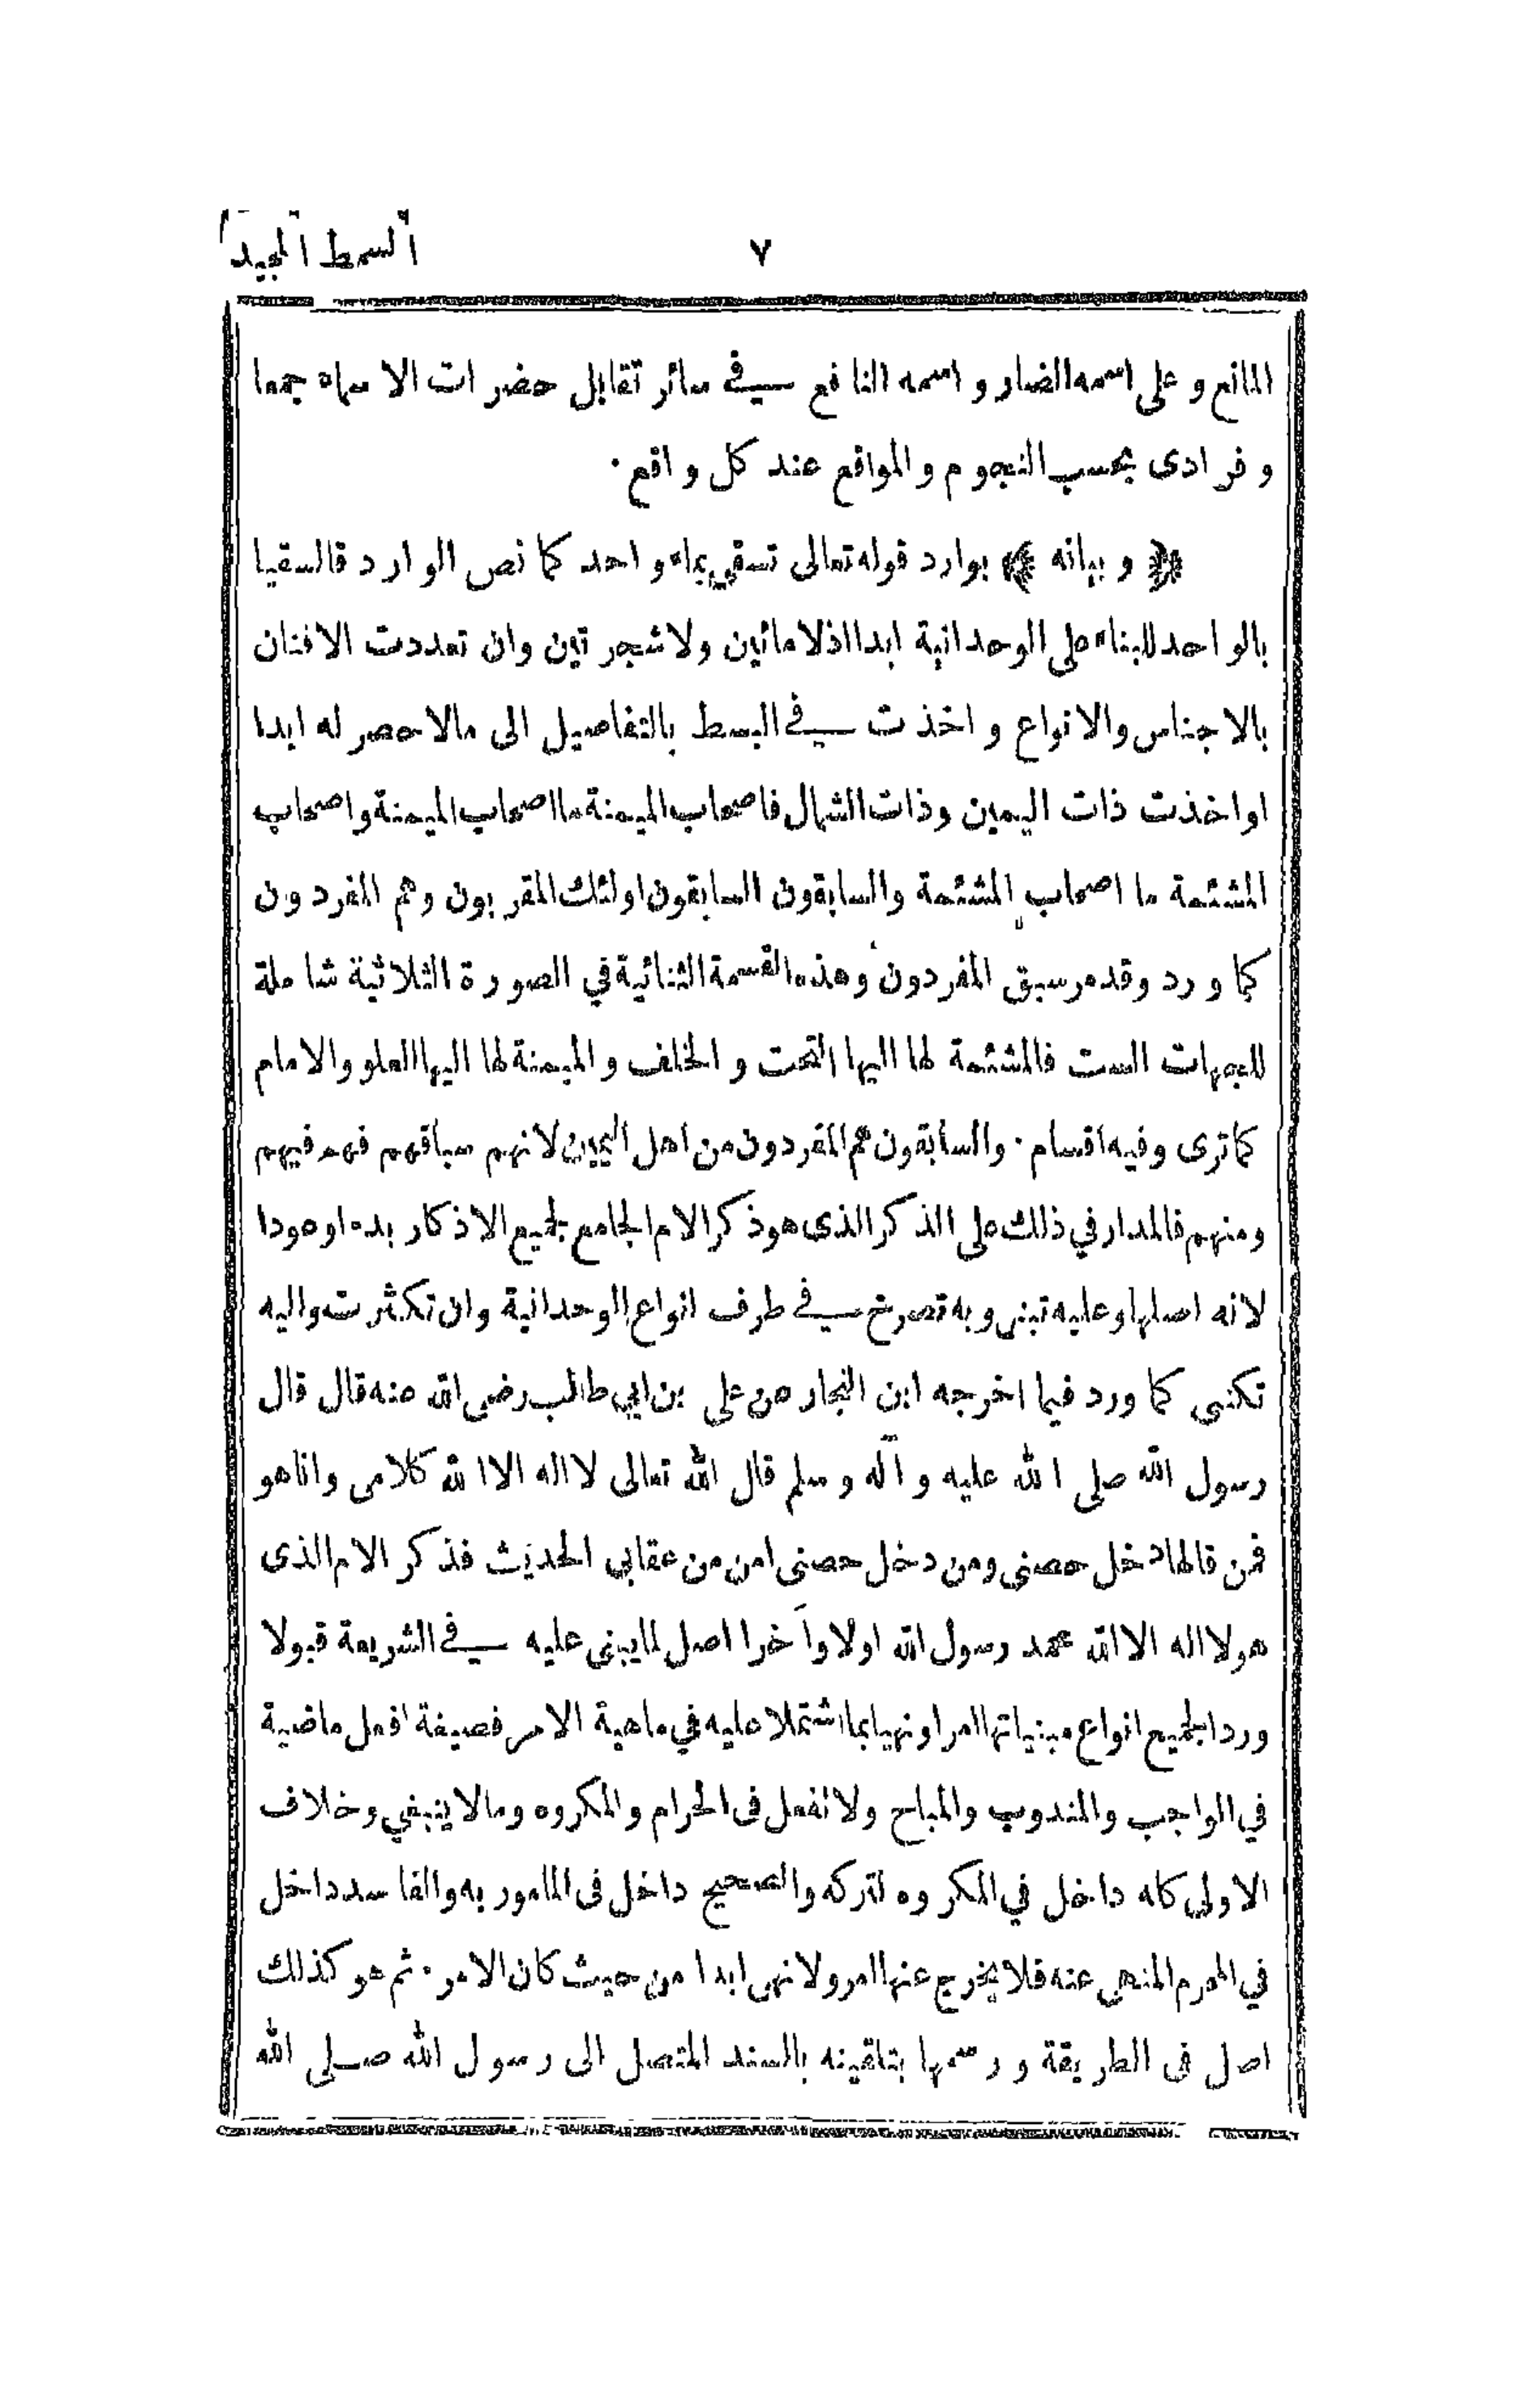 السمط المجيد
٧
المانع وعلى اسمه الضار و اسمه النافع في سائر تقابل حضرات الاسماء جمعا
و فرادى بحسب النجوم والمواقع عند كل واقع ٠
﴿ و بيانه ﴾ بوارد قوله تعالى تسقى بماء واحد كما نص الوارد فالسقيا
بالواحد للبناء على الوحدانية ابدا اذ لا مائين ولا شجرتين وان تعددت الافنان
بالاجناس والانواع و اخذت في البسط بالتفاصيل الى مالا حصر له ابدا
او اخذت ذات اليمين وذات الشمال فاصحاب الميمنة ما اصحاب الميمنة واصحاب
المشئمة ما اصحاب المشئمة والسابقون السابقون اولئك المقربون وهم المفردون
كما ورد وقد مر سبق المفردون وهذه القسمة الثنائية في الصورة الثلاثية شاملة
للجهات الست فالمشئمة لها اليها التحت و الخلف و الميمنة لها اليها العلو والامام
كما ترى وفيه اقسام ٠ والسابقون هم المفردون من اهل اليمين لانهم سباقهم فهم فيهم
ومنهم فالمدار في ذلك على الذكر الذى هو ذكر الام الجامع لجميع الاذكار بدء او عودا
لانه اصلها وعليه تبنى وبه تصرخ في طرف انواع الوحدانية وان تكثرت واليه
تكنى كما ورد فيما اخرجه ابن النجار عن على بن ابي طالب رضى الله عنه قال قال
رسول الله صلى الله عليه و آله و سلم قال الله تعالى لا اله الا الله كلامى وانا هو
فمن قالها دخل حصنى ومن دخل حصنى امن من عقابى الحديث فذكر الام الذى
هو لا اله الا الله محمد رسول الله اولا وآخرا اصل لما يبنى عليه في الشريعة قبولا
وردا لجميع انواع مبنياتها امرا ونهيا بما اشتملا عليه في ماهية الامر فصيغة افعل ماضية
في الواجب والمندوب والمباح ولا تفعل فى الحرام والمكروه وما لا ينبغي وخلاف
الاولى كله داخل في المكروه لتركه والصحيح داخل فى المامور به والفاسد داخل
في المحرم المنهى عنه فلا يخرج عنها امر ولا نهى ابدا من حيث كان الامر ٠ ثم هو كذلك
اصل فى الطريقة و رسمها بتلقينه بالسند المتصل الى رسول الله صلى الله